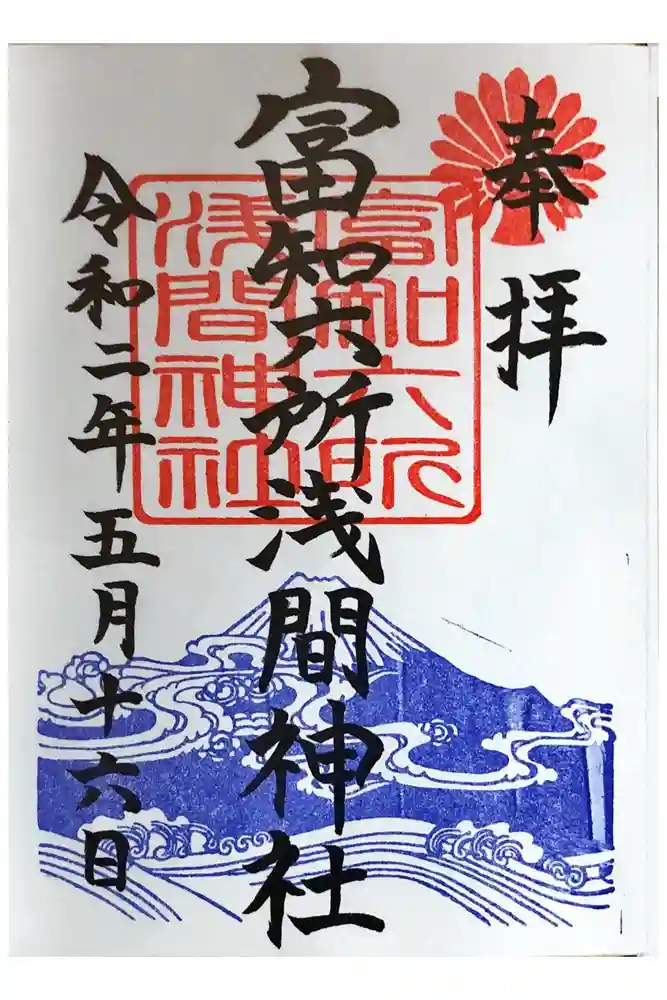 奉拝
富知六所浅間神社
富知六所
浅間神社
令和二年五月十六日